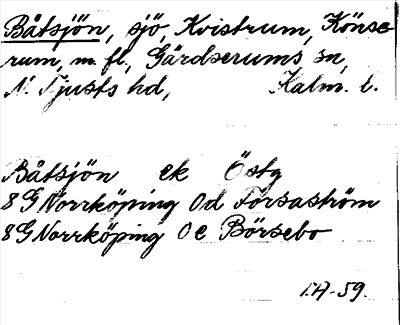 Båtsjön, sjö, Kvistrum, Könse-
rum, m. fl., Gärdserums sn,
N. Tjusts hd, Kalm. l.
Båtsjön ek Östg
8G Norrköping 0d Forsaström
8G Norrköping 0e Börsebo
I.H-59.